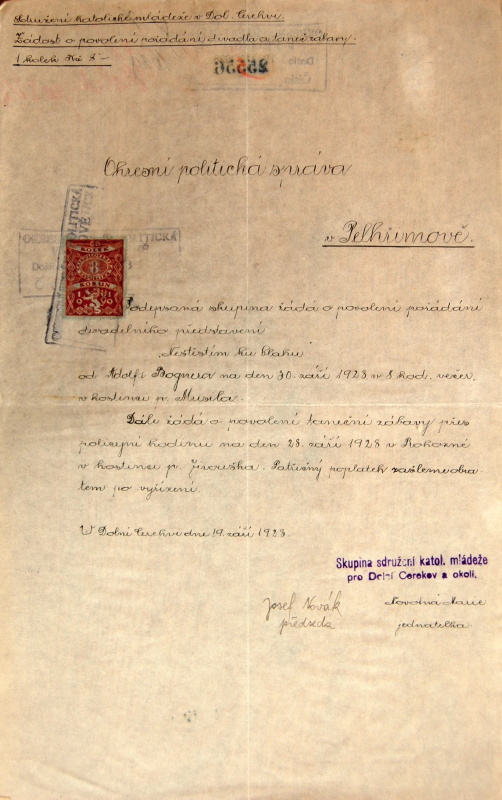 Sdružení katolické mládeže v Dol. Cerekvi.
Žádost o povolení pořádání divadla a taneč. zábavy.
1 kolek Kč 8'-
25556
Okresní politická správa
v Pelhřimově.
KOLEK
8
KORUN
Podepsaná skupina žádá o povolení pořádání
divadelního představení
"Neštěstím ku blahu"
od Adolfa Bognera na den 30. září 1923 v 8 hod. večer,
v hostinci p. Musila.
Dále žádá o povolení taneční zábavy přes
policejní hodinu na den 28. září 1923 v Rohozné
v hostinci p. Jirouška. Patřičný poplatek zašleme obra-
tem po vyřízení.
V Dolní Cerekvi dne 19. září 1923.
Skupina sdružení katol. mládeže
pro Dolní Cerekev a okolí.
Josef Novák
předseda
Novotná Marie
jednatelka.